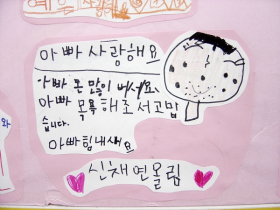 아빠사랑해요
아빠 돈 많이 버서요.
아빠 목욕해조서고맙
습니다.
아빠힘내새요
신재연올림
와